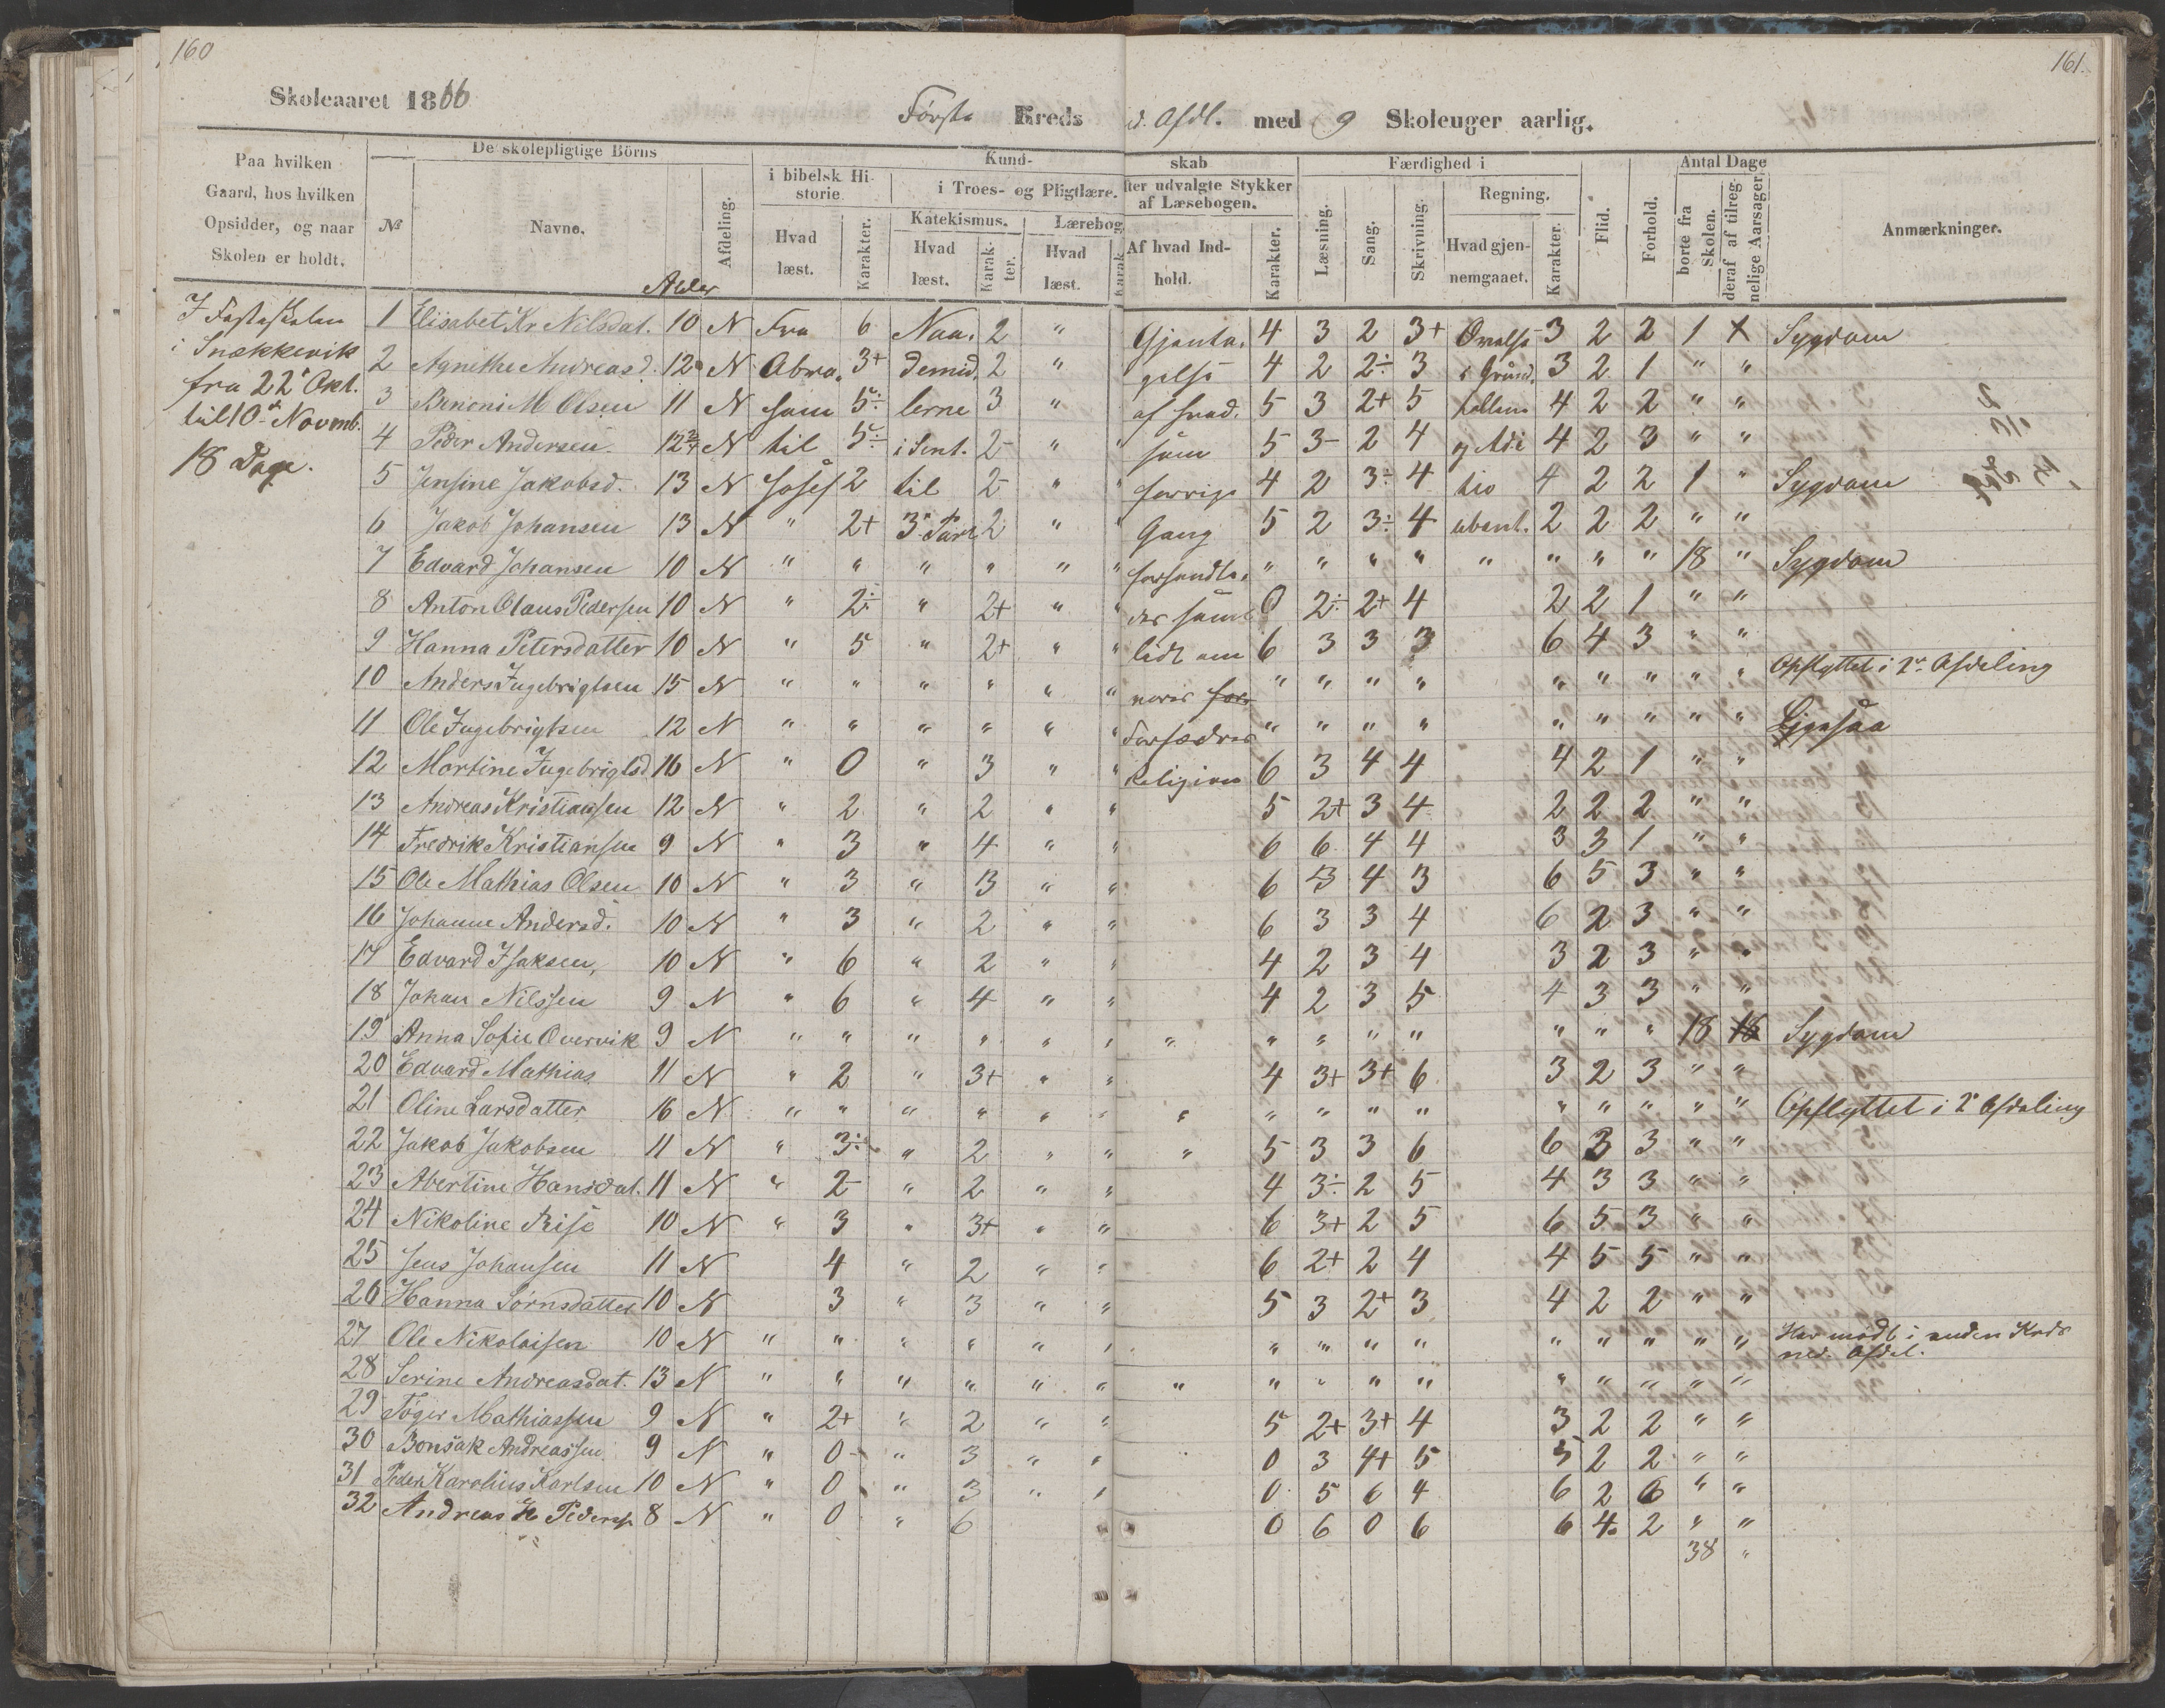 160
161.
Skoleaaret 1866
Første Kreds d. Afdl. med 9 Skoleuger aarlig.
Paa hvilken Gaard, hos hvilken Opsidder, og naar Skolen er holdt.
De skolepligtige Börns
№ Navne. Alder Afdeling.
Kundskab
i bibelsk Historie
Hvad læst. Karakter.
i Troes- og Pligtlære.
Katekismus. Hvad læst. Karakter.
Lærebog Hvad læst. Karak
fter udvalgte Stykker af Læsebogen.
Af hvad Indhold. Karakter.
Færdighed i
Læsning. Sang. Skrivning.
Regning. Hvad gjennemgaaet. Karakter.
Flid. Forhold.
Antal Dage
borte fra Skolen. deraf af tilregnelige Aarsager.
Anmærkninger.
I Fasteskolen
i Snækkevik
fra 22de Okt.
til 10de Novemb.
18 Dage.
1 Elisabet Kr Nilsdat. 10 N Fra 6 Naa. 2 " Gjenta. 4 3 2 3+ Øvelse 3 2 2 1 Sygdom
2 Agnethe Andreasd. 12 N Abra. 3+ demid. 2 " gelse 4 2 2÷ 3 i Grund. 3 2 1 " "
3 Benoni M Olsen 11 N ham 5÷ lerne 3 " af hvad. 5 3 2+ 5 tallene 4 2 2 " "
4 Peder Andersen. 12 3/4 N til 5÷ i Sent. 2- " som 5 3- 2 4 og Adi 4 2 3 " "
5 Jensine Jakobsd. 13 N Josef 2 til 2- " " forrige 4 2 3÷ 4 tio 4 2 2 1 " Sygdom
6 Jakob Johansen 13 N " 2+ 3die Part 2 " " Gang 5 2 3÷ 4 ubent. 2 2 2 " "
7 Edvard Johansen 10 N " " " " " " forhandle. " " " " " " " " 18 " Sygdom
8 Anton Olaus Pedersen 10 N " 2÷ " 2+ " " des samt 0 2÷ 2+ 4 2 2 1 " "
9 Hanna Petersdatter 10 N " 5 " 2+ " " lidt om 6 3 3 3 6 4 3 " "
10 Anders Ingebrigtsen 15 N " " " " " " vores for " " " " " " " " " Opflyttet i 2den Afdeling
11 Ole Ingebrigtsen 12 N " " " " " " Forfædres " " " " " " " " " Ligesaa
12 Martine Ingebrigtsd 16 N " 0 " 3 " " Religion 6 3 4 4 4 2 1 " "
13 Andreas Kristiansen 12 N " 2 " 2 " " 5 2+ 3 4 2 2 2 " "
14 Fredrik Kristiansen 9 N " 3 " 4 " " 6 6 4 4 3 3 1 " "
15 Ole Mathias Olsen 10 N " 3 " 3 " " 6 3 4 3 6 5 3 " "
16 Johanne Andersd. 10 N " 3 " 2 " " 6 3 3 4 6 2 3 " "
17 Edvard Isaksen, 10 N " 6 " 2 " " 4 2 3 4 3 2 3 " "
18 Johan Nilssen 9 N " 6 " 4 " " 4 2 3 5 4 3 3 " "
19 Anna Sofie Overvik 9 N " " " " " " " " " " " " " " 18 18 Sygdom
20 Edvard Mathias 11 N " 2 " 3+ " " 4 3+ 3+ 6 3 2 3 " "
21 Oline Larsdatter 16 N " " " " " " " " " " " " " " " " Opflyttet i 2den Afdeling
22 Jakob Jakobsen 11 N " 3÷ " 2 " " " 5 3 3 6 6 3 3 " "
23 Abertine Hansdat. 11 N " 2- " 2 " " 4 3÷ 2 5 4 3 3 " "
24 Nikoline Risø 10 N " 3 " 3+ " " 6 3+ 2 5 6 5 3 " "
25 Jens Johansen 11 N 4 " 2 " " 6 2+ 2 4 4 5 5 " "
26 Hanna Sørnsdatter 10 N 3 " 3 " " 5 3 2+ 3 4 2 2 " "
27 Ole Nikolaisen 10 N " " " " " " " " " " " " " " " Har mødt i anden Kreds
ned. Afdel.
28 Serine Andreasdat. 13 N " " " " " " " " " " " " " " " "
29 Tøger Mathiassen 9 N " 2+ " 2 " " 5 2+ 3+ 4 3 2 2 " "
30 Bonsak Andreassen 9 N " 0 " 3 " " 0 3 4+ 5 5 2 2 " "
31 Peder Karolius Karlsen 10 N " 0 " 3 " " 0 5 6 4 6 2 6 " "
32 Andreas H Pedersen 8 N " 0 " 6 0 6 0 6 6 4 2 " "
38 "